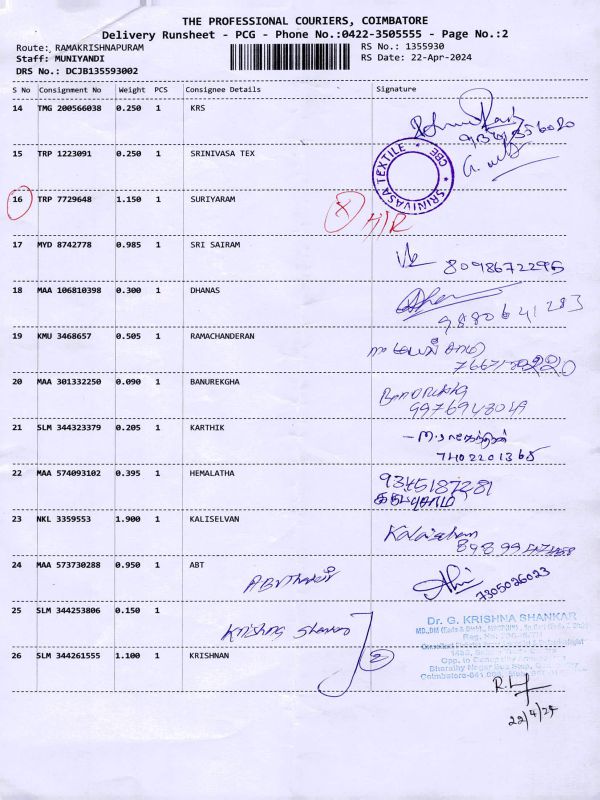 THE PROFESSIONAL COURIERS, COIMBATORE
Delivery Runsheet - PCG - Phone No.:0422-3505555 - Page No.:2
Route: RAMAKRISHNAPURAM RS No.: 1355930
Staff: MUNIYANDI RS Date: 22-Apr-2024
DRS No.: DCJB135593002
S No Consignment No Weight PCS Consignee Details Signature
14 TMG 200566038 0.250 1 KRS
15 TRP 1223091 0.250 1 SRINIVASA TEX
SRINIVASA TEXTILE * CBE *
16 TRP 7729648 1.150 1 SURIYARAM
17 MYD 8742778 0.985 1 SRI SAIRAM
8098672295
18 MAA 106810398 0.300 1 DHANAS
9880641283
19 KMU 3468657 0.505 1 RAMACHANDERAN
20 MAA 301332250 0.090 1 BANUREKGHA
21 SLM 344323379 0.205 1 KARTHIK
7402201365
22 MAA 574093102 0.395 1 HEMALATHA
9345187281
23 NKL 3359553 1.900 1 KALISELVAN
24 MAA 573730288 0.950 1 ABT
7305026023
25 SLM 344253806 0.150 1
Krishna Shankar
Dr. G. KRISHNA SHANKAR
26 SLM 344261555 1.100 1 KRISHNAN 2
22/4/24